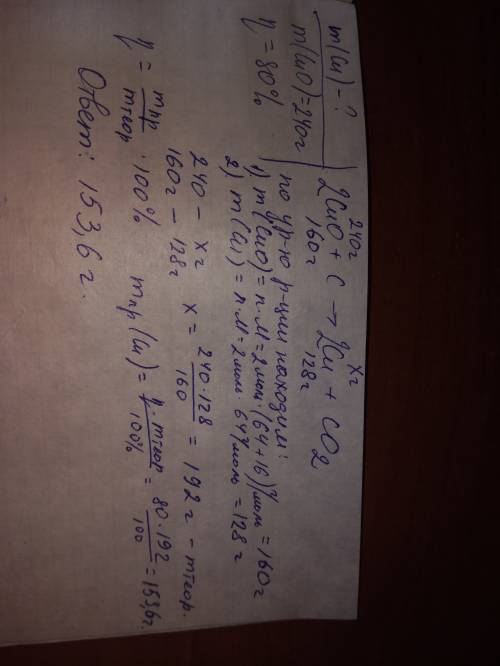 m(Cu) - ?
m(CuO) = 240г
η = 80%
240г xг
2CuO + C → 2Cu + CO2
160г 128г
по ур-ю р-ции находим:
1) m(CuO) = n·M = 2моль·(64+16)г/моль = 160г
2) m(Cu) = n·M = 2моль·64г/моль = 128г
240 - xг x = 240·128/160 = 192г - mтеор.
160г - 128г
η = mпр/mтеор · 100% mпр(Cu) = η·mтеор/100% = 80·192/100 = 153,6г.
Ответ: 153,6г.